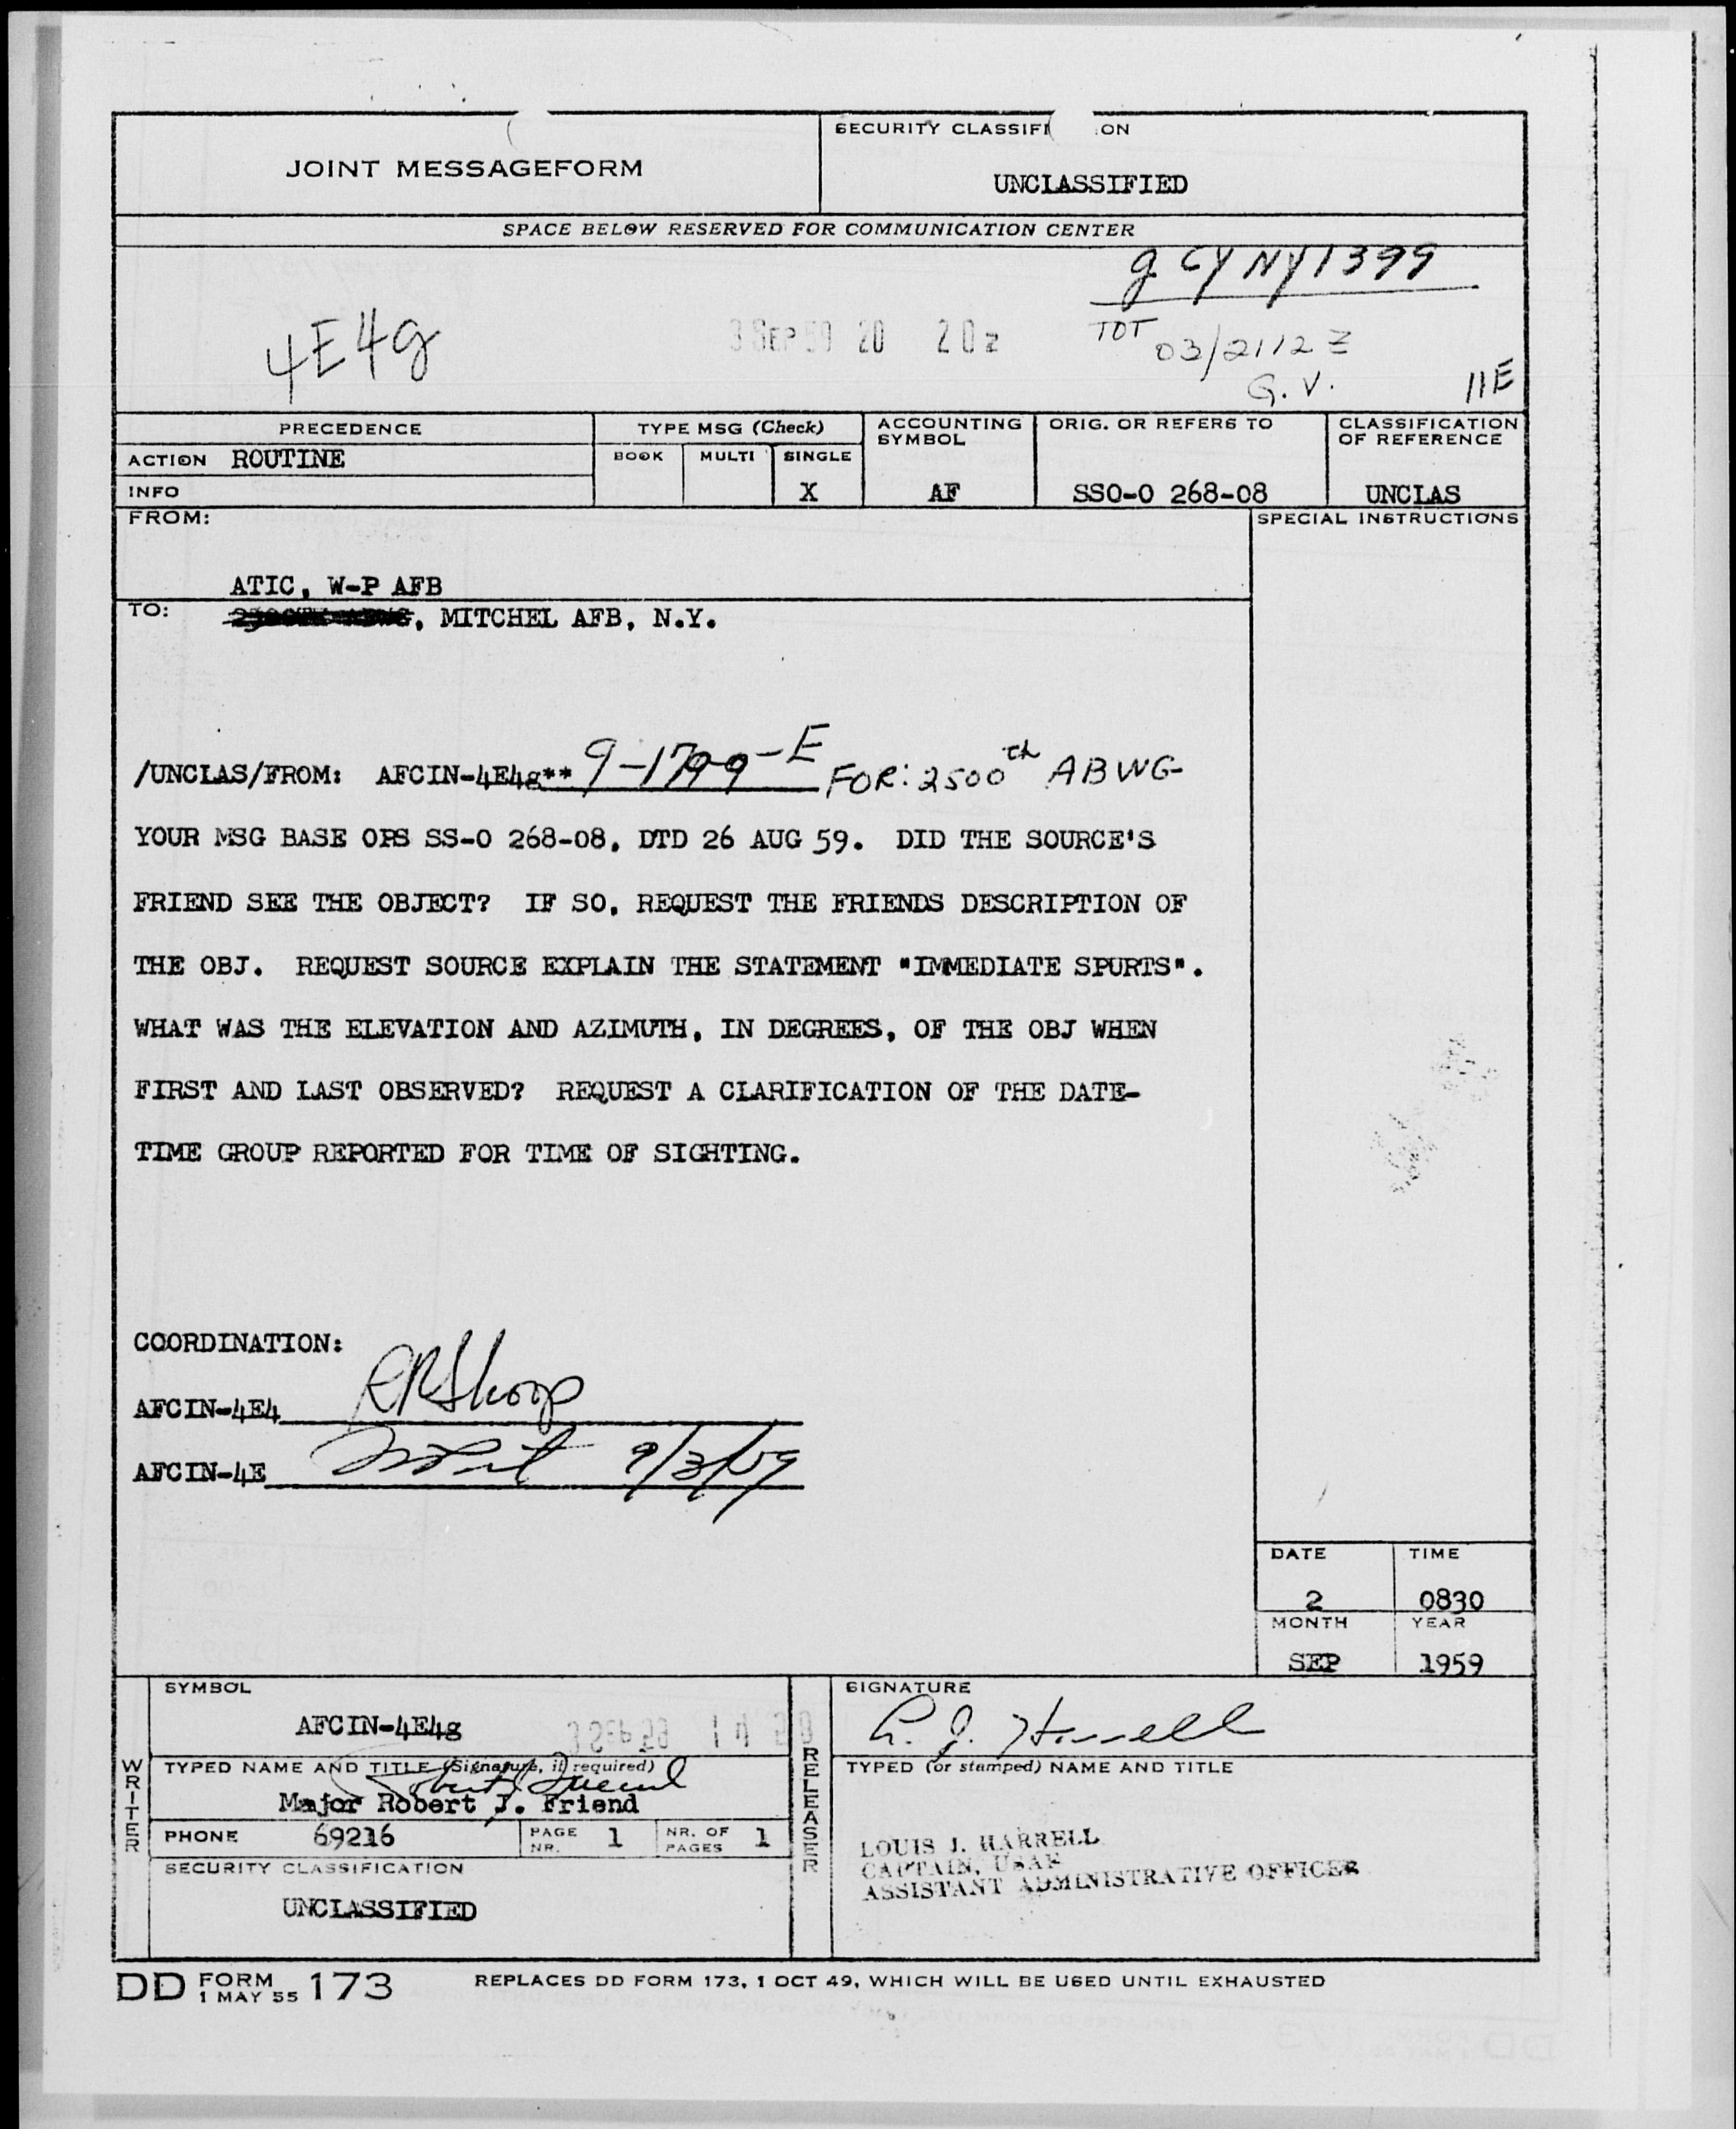 JOINT MESSAGEFORM
SECURITY CLASSIFI ON
UNCLASSIFIED
SPACE BELOW RESERVED FOR COMMUNICATION CENTER
g CY NY1399
4E4g
3 SEP 59 20 20z
TOT 03/2112 Z
G.V.
11E
PRECEDENCE
TYPE MSG (Check)
ACCOUNTING SYMBOL
ORIG. OR REFERS TO
CLASSIFICATION OF REFERENCE
ACTION ROUTINE
BOOK MULTI SINGLE
INFO
X AF SSO-O 268-08 UNCLAS
FROM:
SPECIAL INSTRUCTIONS
ATIC, W-P AFB
TO: , MITCHEL AFB, N.Y.
/UNCLAS/FROM: AFCIN-4E4g** 9-1799-E FOR: 2500th ABWG
YOUR MSG BASE OPS SS-O 268-08, DTD 26 AUG 59. DID THE SOURCE'S
FRIEND SEE THE OBJECT? IF SO, REQUEST THE FRIENDS DESCRIPTION OF
THE OBJ. REQUEST SOURCE EXPLAIN THE STATEMENT "IMMEDIATE SPURTS".
WHAT WAS THE ELEVATION AND AZIMUTH, IN DEGREES, OF THE OBJ WHEN
FIRST AND LAST OBSERVED? REQUEST A CLARIFICATION OF THE DATE-
TIME GROUP REPORTED FOR TIME OF SIGHTING.
COORDINATION:
AFCIN-4E4 RRShoop
AFCIN-4E 9/3/59
DATE TIME
2 0830
MONTH YEAR
SEP 1959
SYMBOL
AFCIN-4E4g
3 SEP 59 14
WRITER
TYPED NAME AND TITLE (Signature, if required)
Robert J Friend
Major Robert J. Friend
PHONE 69216
PAGE NR. 1
NR. OF PAGES 1
SECURITY CLASSIFICATION
UNCLASSIFIED
RELEASER
SIGNATURE
L. J. Harrell
TYPED (or stamped) NAME AND TITLE
LOUIS J. HARRELL
CAPTAIN, USAF
ASSISTANT ADMINISTRATIVE OFFICER
DD FORM 1 MAY 55 173
REPLACES DD FORM 173, 1 OCT 49, WHICH WILL BE USED UNTIL EXHAUSTED